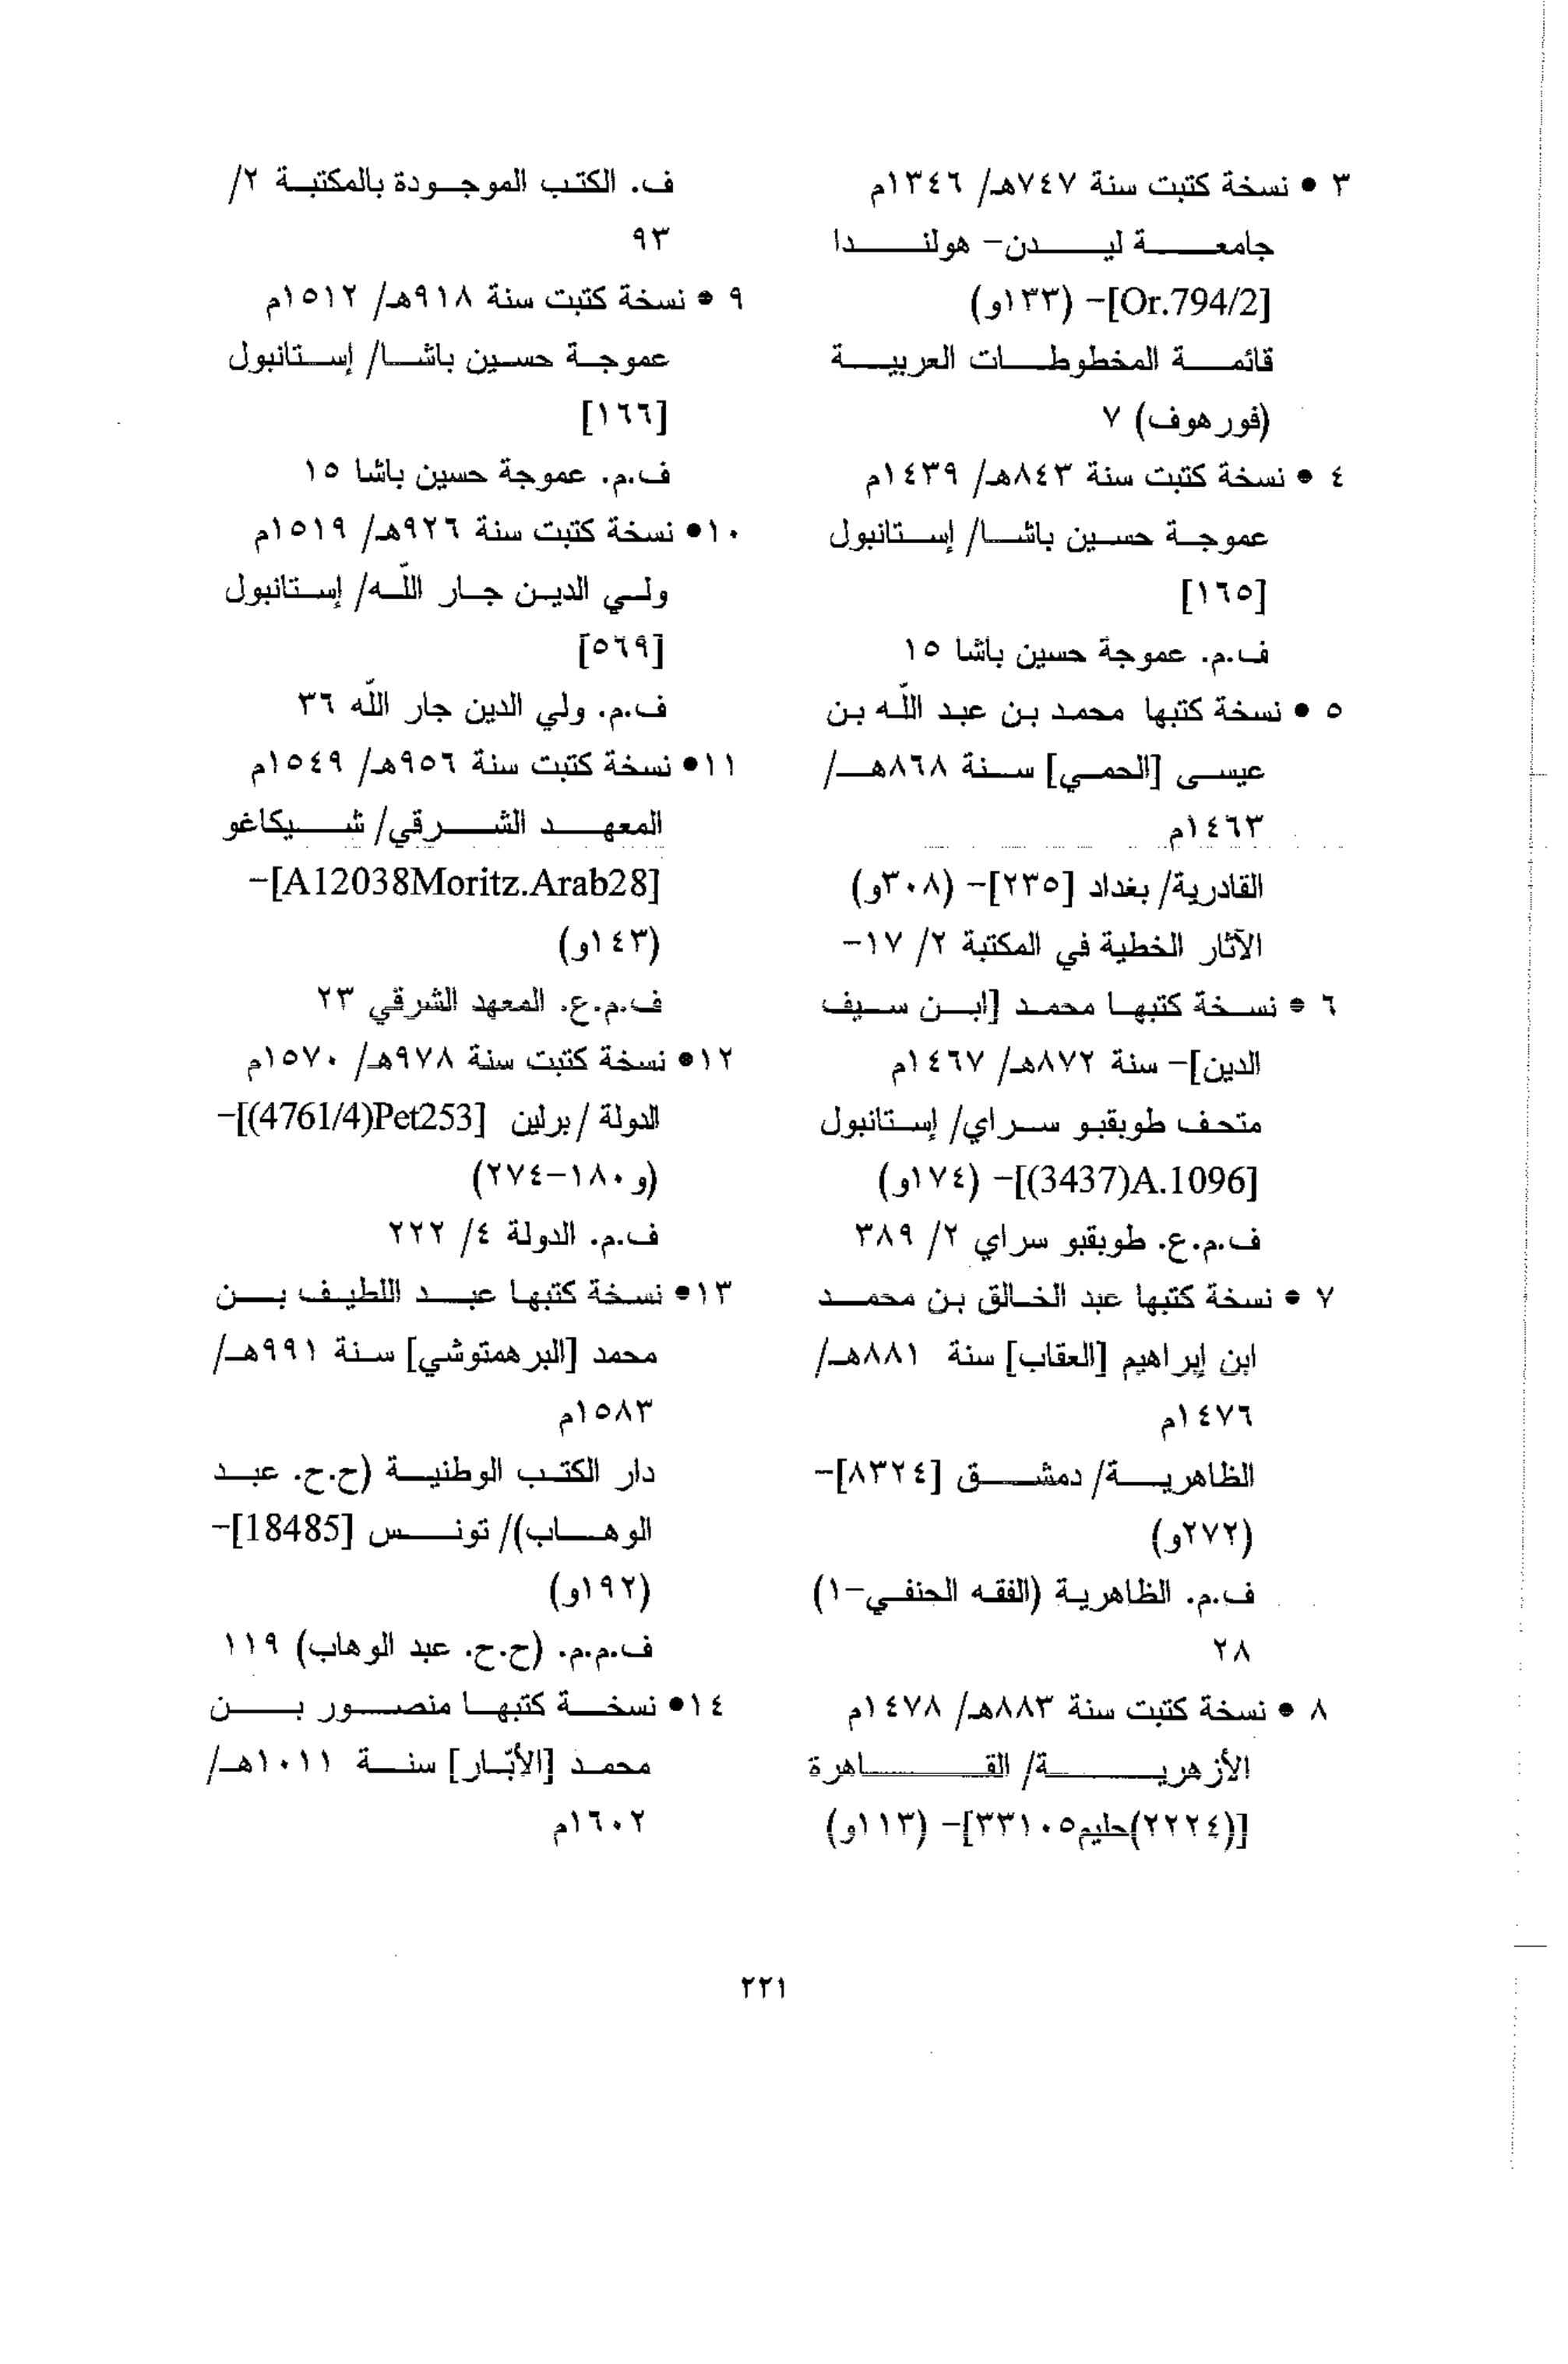 ٣ • نسخة كتبت سنة ٧٤٧هـ/ ١٣٤٦م
جامعة ليدن- هولندا
[Or.794/2]- (١٣٣و)
قائمة المخطوطات العربية
(فورهوف) ٧
٤ • نسخة كتبت سنة ٨٤٣هـ/ ١٤٣٩م
عموجة حسين باشا/ إستانبول
[١٦٥]
ف.م. عموجة حسين باشا ١٥
٥ • نسخة كتبها محمد بن عبد اللّه بن
عيسى [الحمي] سنة ٨٦٨هـ/
١٤٦٣م
القادرية/ بغداد [٢٣٥]- (٣٠٨و)
الآثار الخطية في المكتبة ٢/ ١٧-
٦ • نسخة كتبها محمد [ابن سيف
الدين]- سنة ٨٧٢هـ/ ١٤٦٧م
متحف طوبقبو سراي/ إستانبول
[3437)A.1096)]- (١٧٤و)
ف.م.ع. طوبقبو سراي ٢/ ٣٨٩
٧ • نسخة كتبها عبد الخالق بن محمد
ابن إبراهيم [العقاب] سنة ٨٨١هـ/
١٤٧٦م
الظاهرية/ دمشق [٨٣٢٤]-
(٢٧٢و)
ف.م. الظاهرية (الفقه الحنفي-١)
٢٨
٨ • نسخة كتبت سنة ٨٨٣هـ/ ١٤٧٨م
الأزهرية/ القاهرة
[(٢٢٢٤)حليم٣٣١٠٥]- (١١٣و)
ف. الكتب الموجودة بالمكتبة ٢/
٩٣
٩ • نسخة كتبت سنة ٩١٨هـ/ ١٥١٢م
عموجة حسين باشا/ إستانبول
[١٦٦]
ف.م. عموجة حسين باشا ١٥
١٠• نسخة كتبت سنة ٩٢٦هـ/ ١٥١٩م
ولي الدين جار اللّه/ إستانبول
[٥٦٩]
ف.م. ولي الدين جار اللّه ٣٦
١١• نسخة كتبت سنة ٩٥٦هـ/ ١٥٤٩م
المعهد الشرقي/ شيكاغو
[A12038Moritz.Arab28]-
(١٤٣و)
ف.م.ع. المعهد الشرقي ٢٣
١٢• نسخة كتبت سنة ٩٧٨هـ/ ١٥٧٠م
الدولة /برلين [4761/4)Pet253)]-
(و١٨٠-٢٧٤)
ف.م. الدولة ٤/ ٢٢٢
١٣• نسخة كتبها عبد اللطيف بن
محمد [البرهمتوشي] سنة ٩٩١هـ/
١٥٨٣م
دار الكتب الوطنية (ح.ح. عبد
الوهاب)/ تونس [18485]-
(١٩٢و)
ف.م.م. (ح.ح. عبد الوهاب) ١١٩
١٤• نسخة كتبها منصور بن
محمد [الأبّار] سنة ١٠١١هـ/
١٦٠٢م
٢٢١